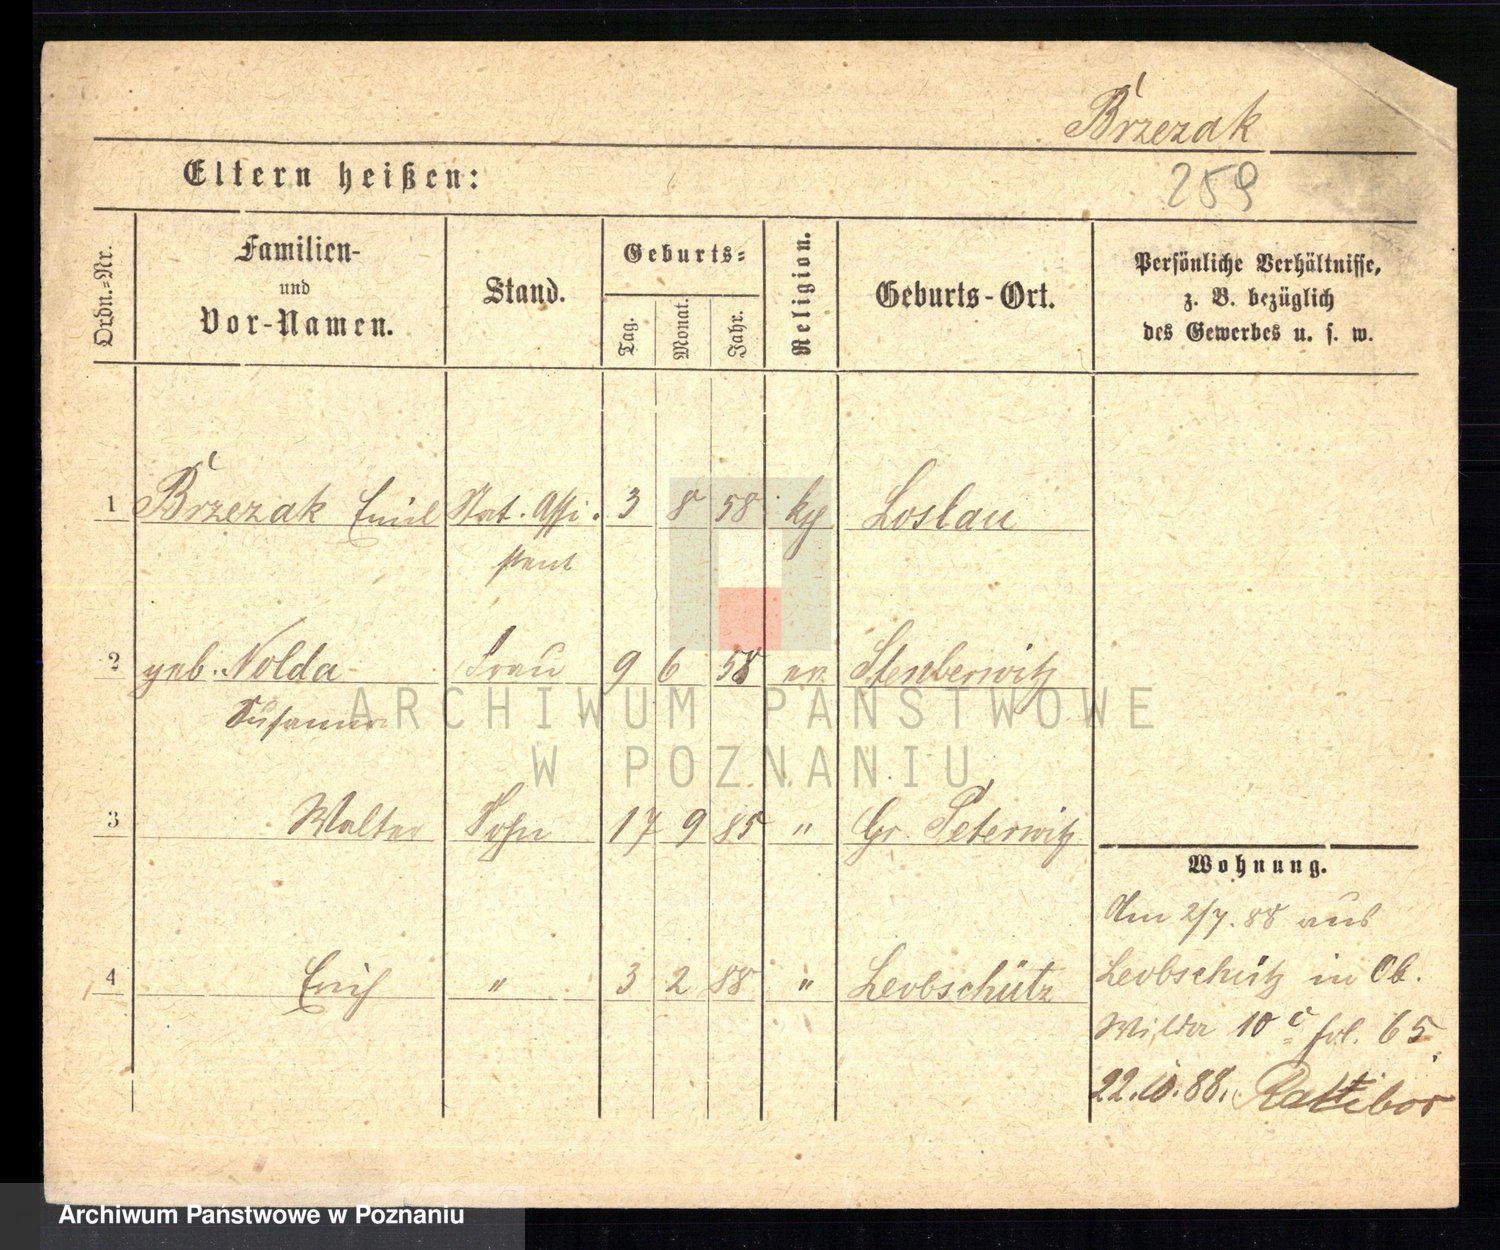 Brzezak
Eltern heißen:
259
Ordn.-Nr.
Familien-
und
Vor-Namen.
Stand.
Geburts-
Tag.
Monat.
Jahr.
Religion.
Geburts-Ort.
Persönliche Verhältnisse,
z. B. bezüglich
des Gewerbes u. s. w.
1 Brzezak Emil Stat. Assi- 3 8 58 Loslau
stent
2 geb. Nolda Frau 9 6 58 ev.
Susanna
3 Walter Sohn 17 9 85 " Gr. Peterwitz
4 Erich " 3 2 88 " Leobschütz
Wohnung.
Am 2/7. 88 aus
Leobschütz in Ob.
Wilda 10 c fol. 65
22.10.88. Rattibor
ARCHIWUM PAŃSTWOWE
W POZNANIU
Archiwum Państwowe w Poznaniu